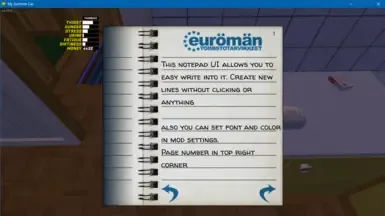 My Summer Car
THIRST
HUNGER
STRESS
URINE
FATIGUE
DIRTINESS
MONEY
euromän
TOIMISTOTARVIKKEET
1
THIS NOTEPAD UI ALLOWS YOU TO
EASY WRITE INTO IT. CREATE NEW
LINES WITHOUT CLICKING OR
ANYTHING
ALSO YOU CAN SET FONT AND COLOR
IN MOD SETTINGS.
PAGE NUMBER IN TOP RIGHT
CORNER